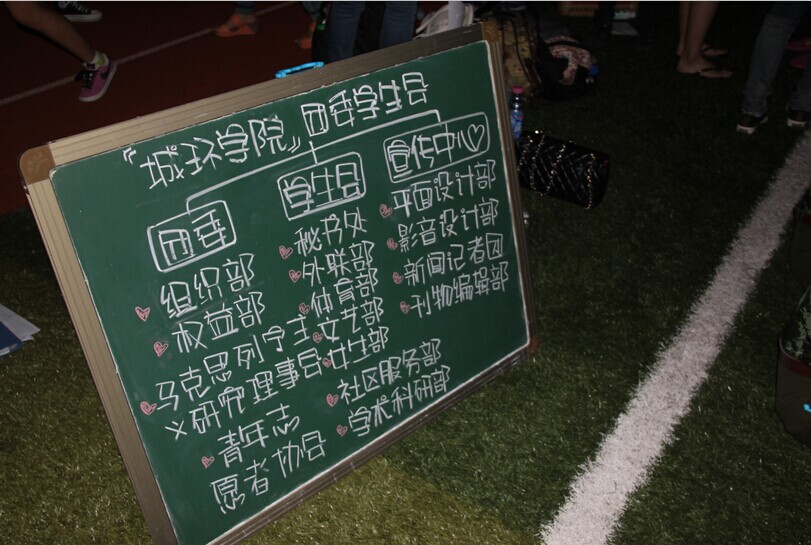 『城环学院』团委学生会
团委
组织部
权益部
马克思列宁主
义研究理事会
青年志
愿者协会
学生会
秘书处
外联部
体育部
文艺部
女生部
社区服务部
学术科研部
宣传中心
平面设计部
影音设计部
新闻记者团
刊物编辑部